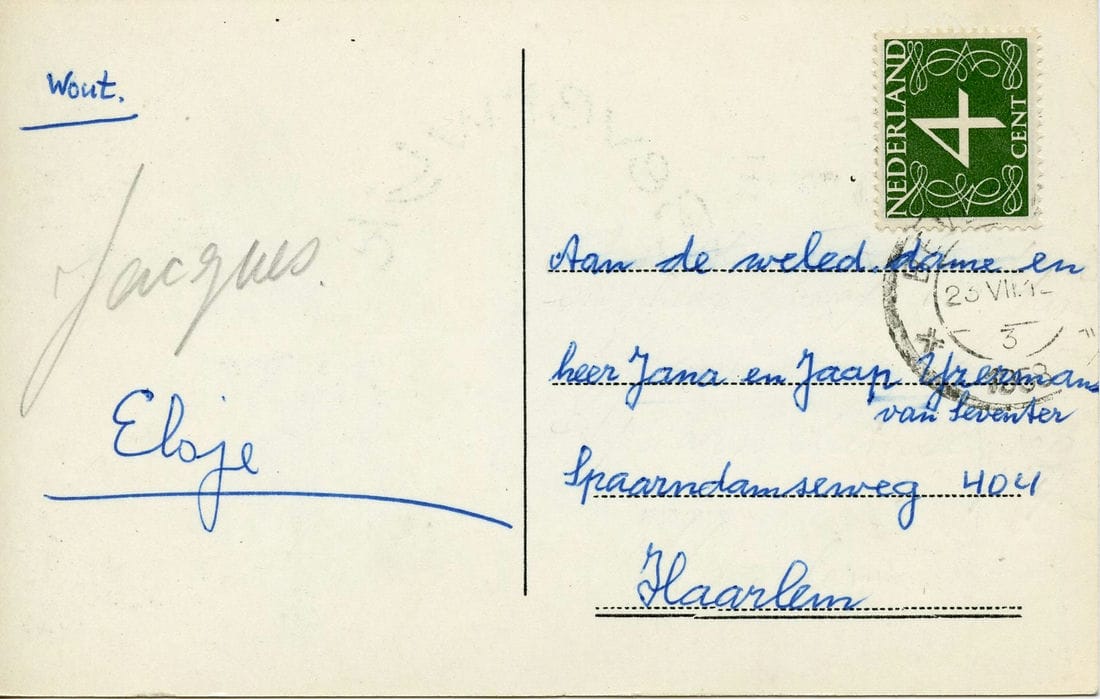 Wout.
Jacques.
Elsje
NEDERLAND
4
CENT
Aan de weled. dame en
heer Jana en Jaap IJzermans
van Leventer
Spaarndamseweg 404
Haarlem
3